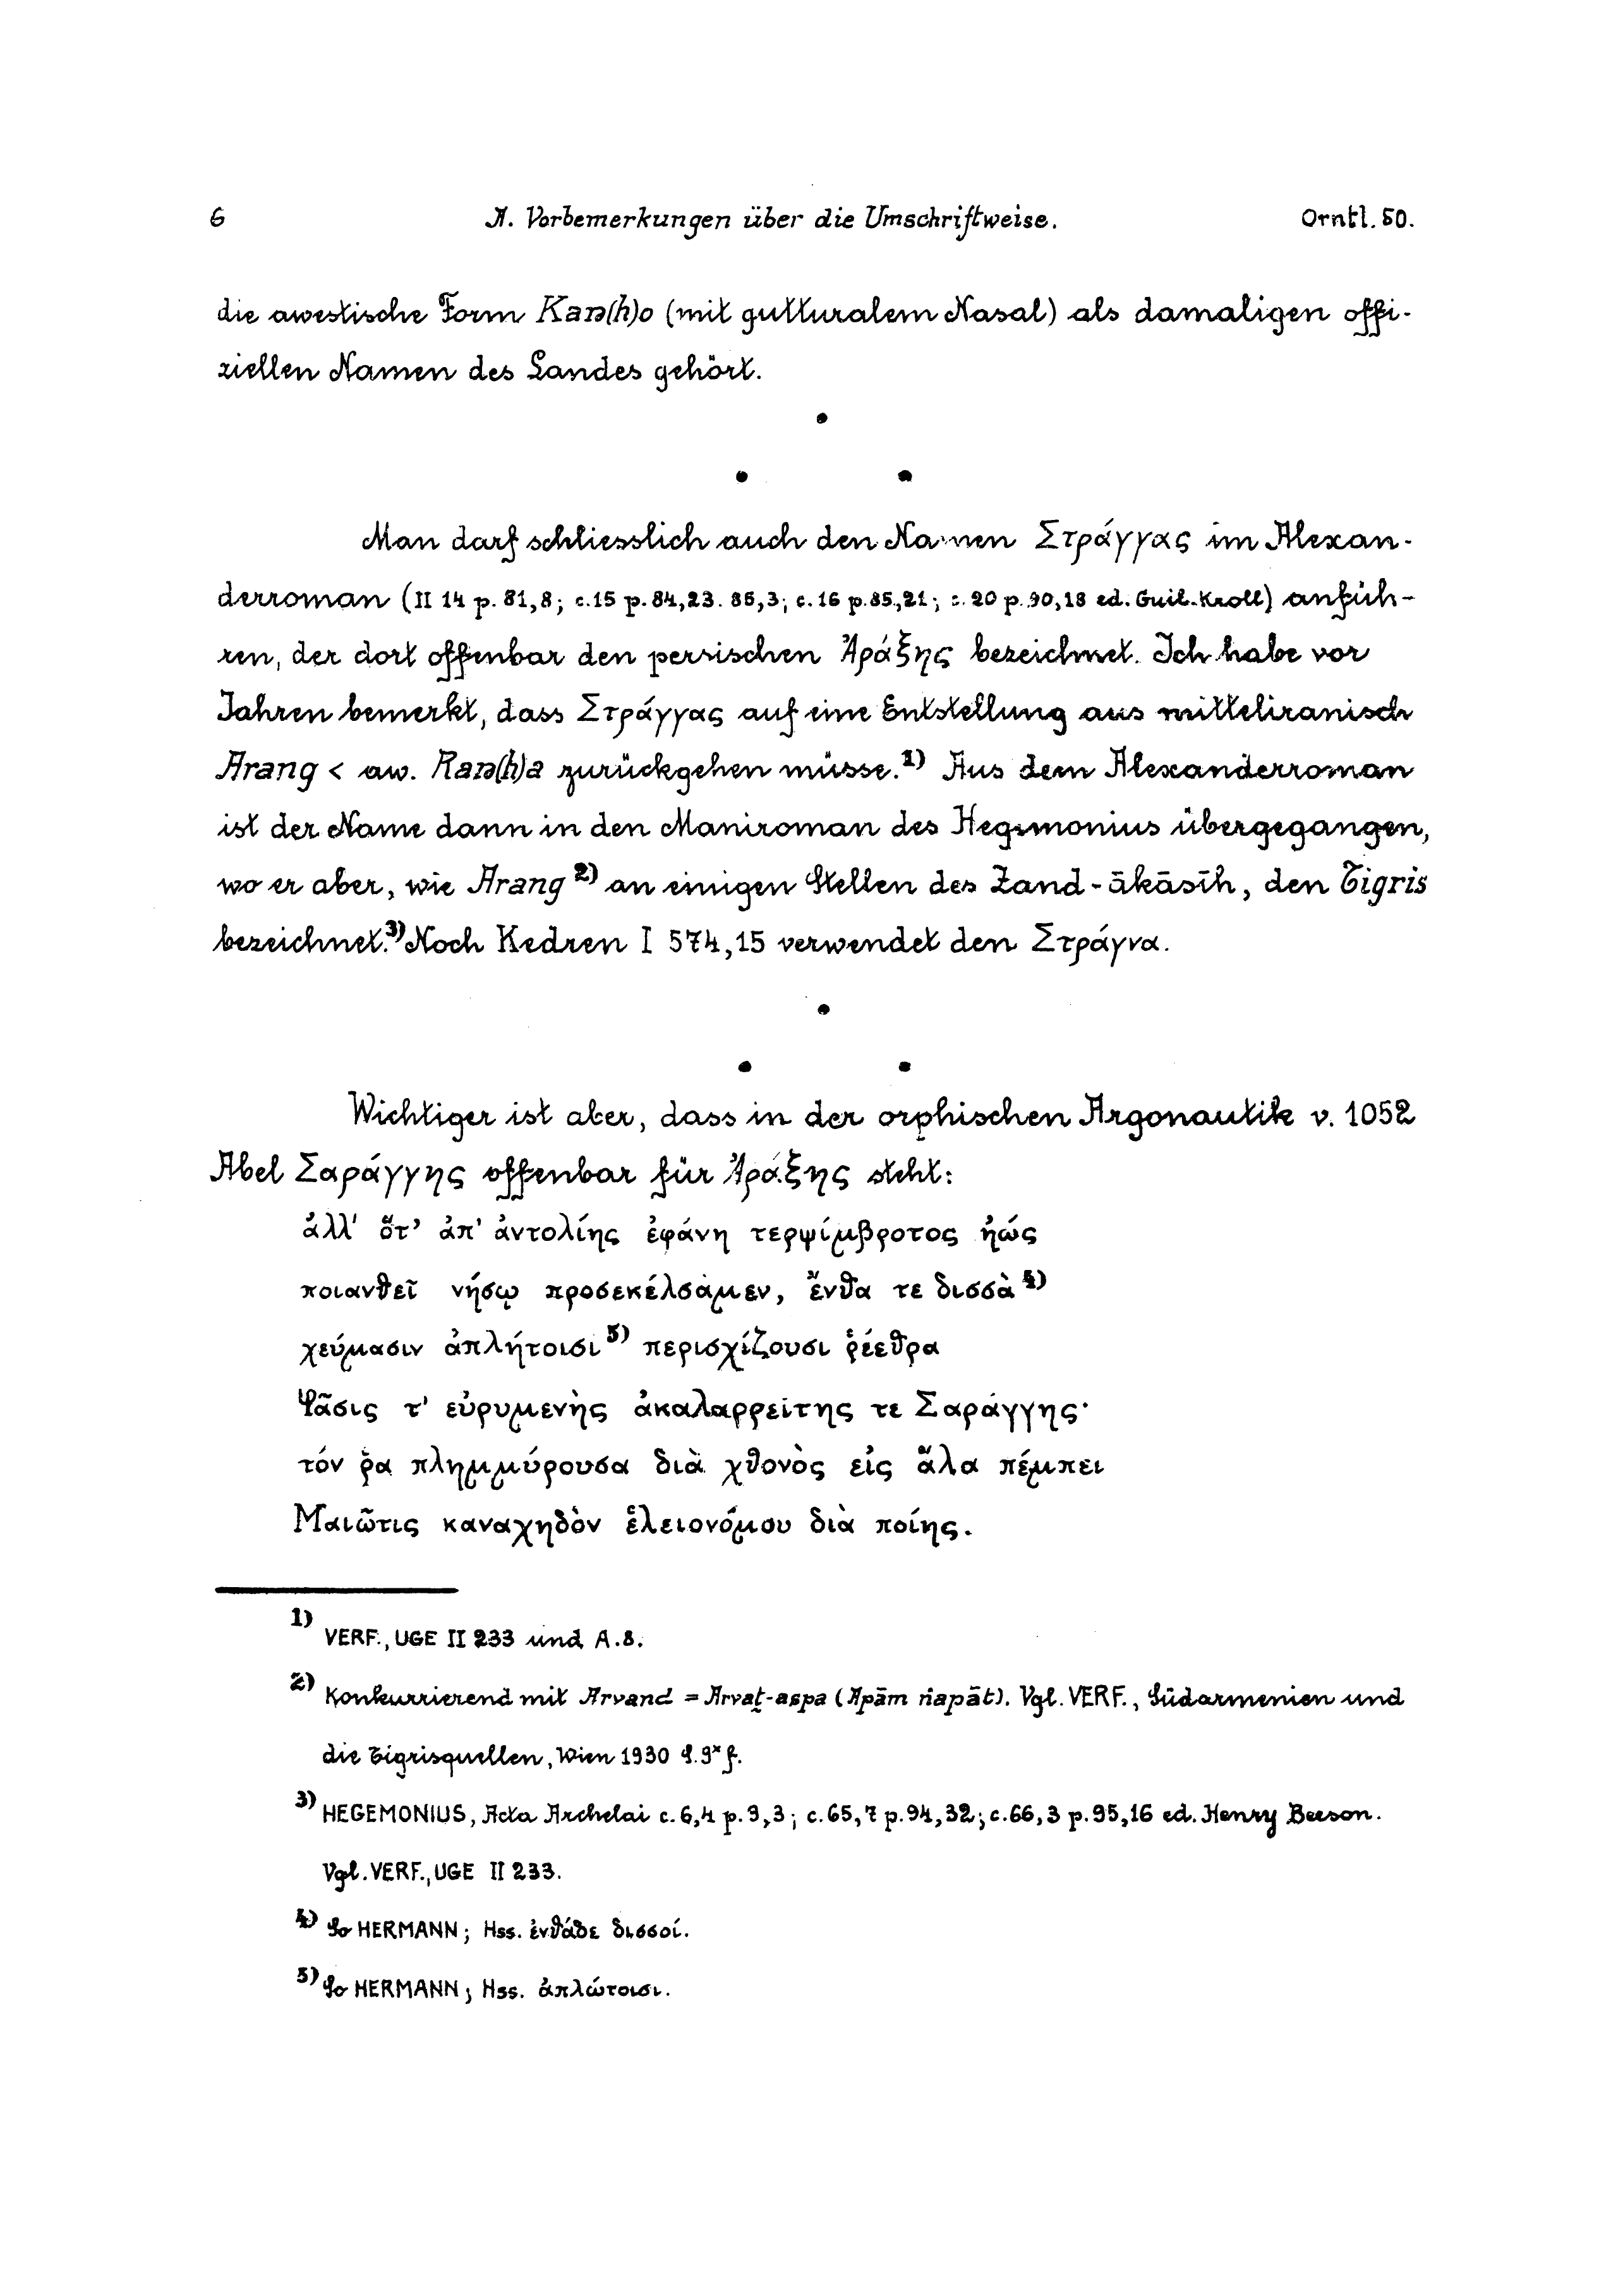 6 A. Vorbemerkungen über die Umschriftweise. Orntl. 50.
die awestische Form Kaŋ(h)o (mit gutturalem Nasal) als damaligen offi-
ziellen Namen des Landes gehört.
Man darf schliesslich auch den Namen Στράγγας im Alexan-
derroman (II 14 p. 81,8; c. 15 p. 84,23. 85,3; c. 16 p. 85,21; c. 20 p. 90,18 ed. Guil. Kroll) anfüh-
ren, der dort offenbar den persischen Ἀράξης bezeichnet. Ich habe vor
Jahren bemerkt, dass Στράγγας auf eine Entstellung aus mitteliranisch
Arang < aw. Raŋ(h)a zurückgehen müsse.1) Aus dem Alexanderroman
ist der Name dann in den Maniroman des Hegemonius übergegangen,
wo er aber, wie Arang 2) an einigen Stellen des Zand-ākāsīh, den Tigris
bezeichnet.3) Noch Kedren I 574,15 verwendet den Στράγνα.
Wichtiger ist aber, dass in der orphischen Argonautik v. 1052
Abel Σαράγγης offenbar für Ἀράξης steht:
ἀλλ' ὅτ' ἀπ' ἀντολίης ἐφάνη τερψίμβροτος ἠώς
ποιανθεῖ νήσῳ προσεκέλσαμεν, ἔνθα τε δισσὰ 4)
χεύμασιν ἀπλήτοισι 5) περισχίζουσι ῥέεθρα
Φᾶσις τ' εὐρυμενὴς ἀκαλαρρείτης τε Σαράγγης·
τόν ῥα πλημμύρουσα διὰ χθονὸς εἰς ἅλα πέμπει
Μαιῶτις καναχηδὸν ἑλειονόμου διὰ ποίης.
1) VERF., UGE II 233 und A. 8.
2) Konkurrierend mit Arvand = Arvaṯ-aspa (Apām napāt). Vgl. VERF., Südarmenien und
die Tigrisquellen, Wien 1930 S. 9* f.
3) HEGEMONIUS, Acta Archelai c. 6,4 p. 9,3; c. 65,7 p. 94,32; c. 66,3 p. 95,16 ed. Henry Beeson.
Vgl. VERF., UGE II 233.
4) So HERMANN; Hss. ἐνθάδε δισσοί.
5) So HERMANN; Hss. ἀπλώτοισι.